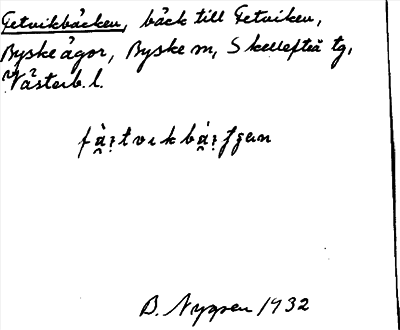 Fetvikbäcken, bäck till Fetviken,
Byske ägor, Byske m, Skellefteå tg,
Västerb. l.
B. Nygren 1932